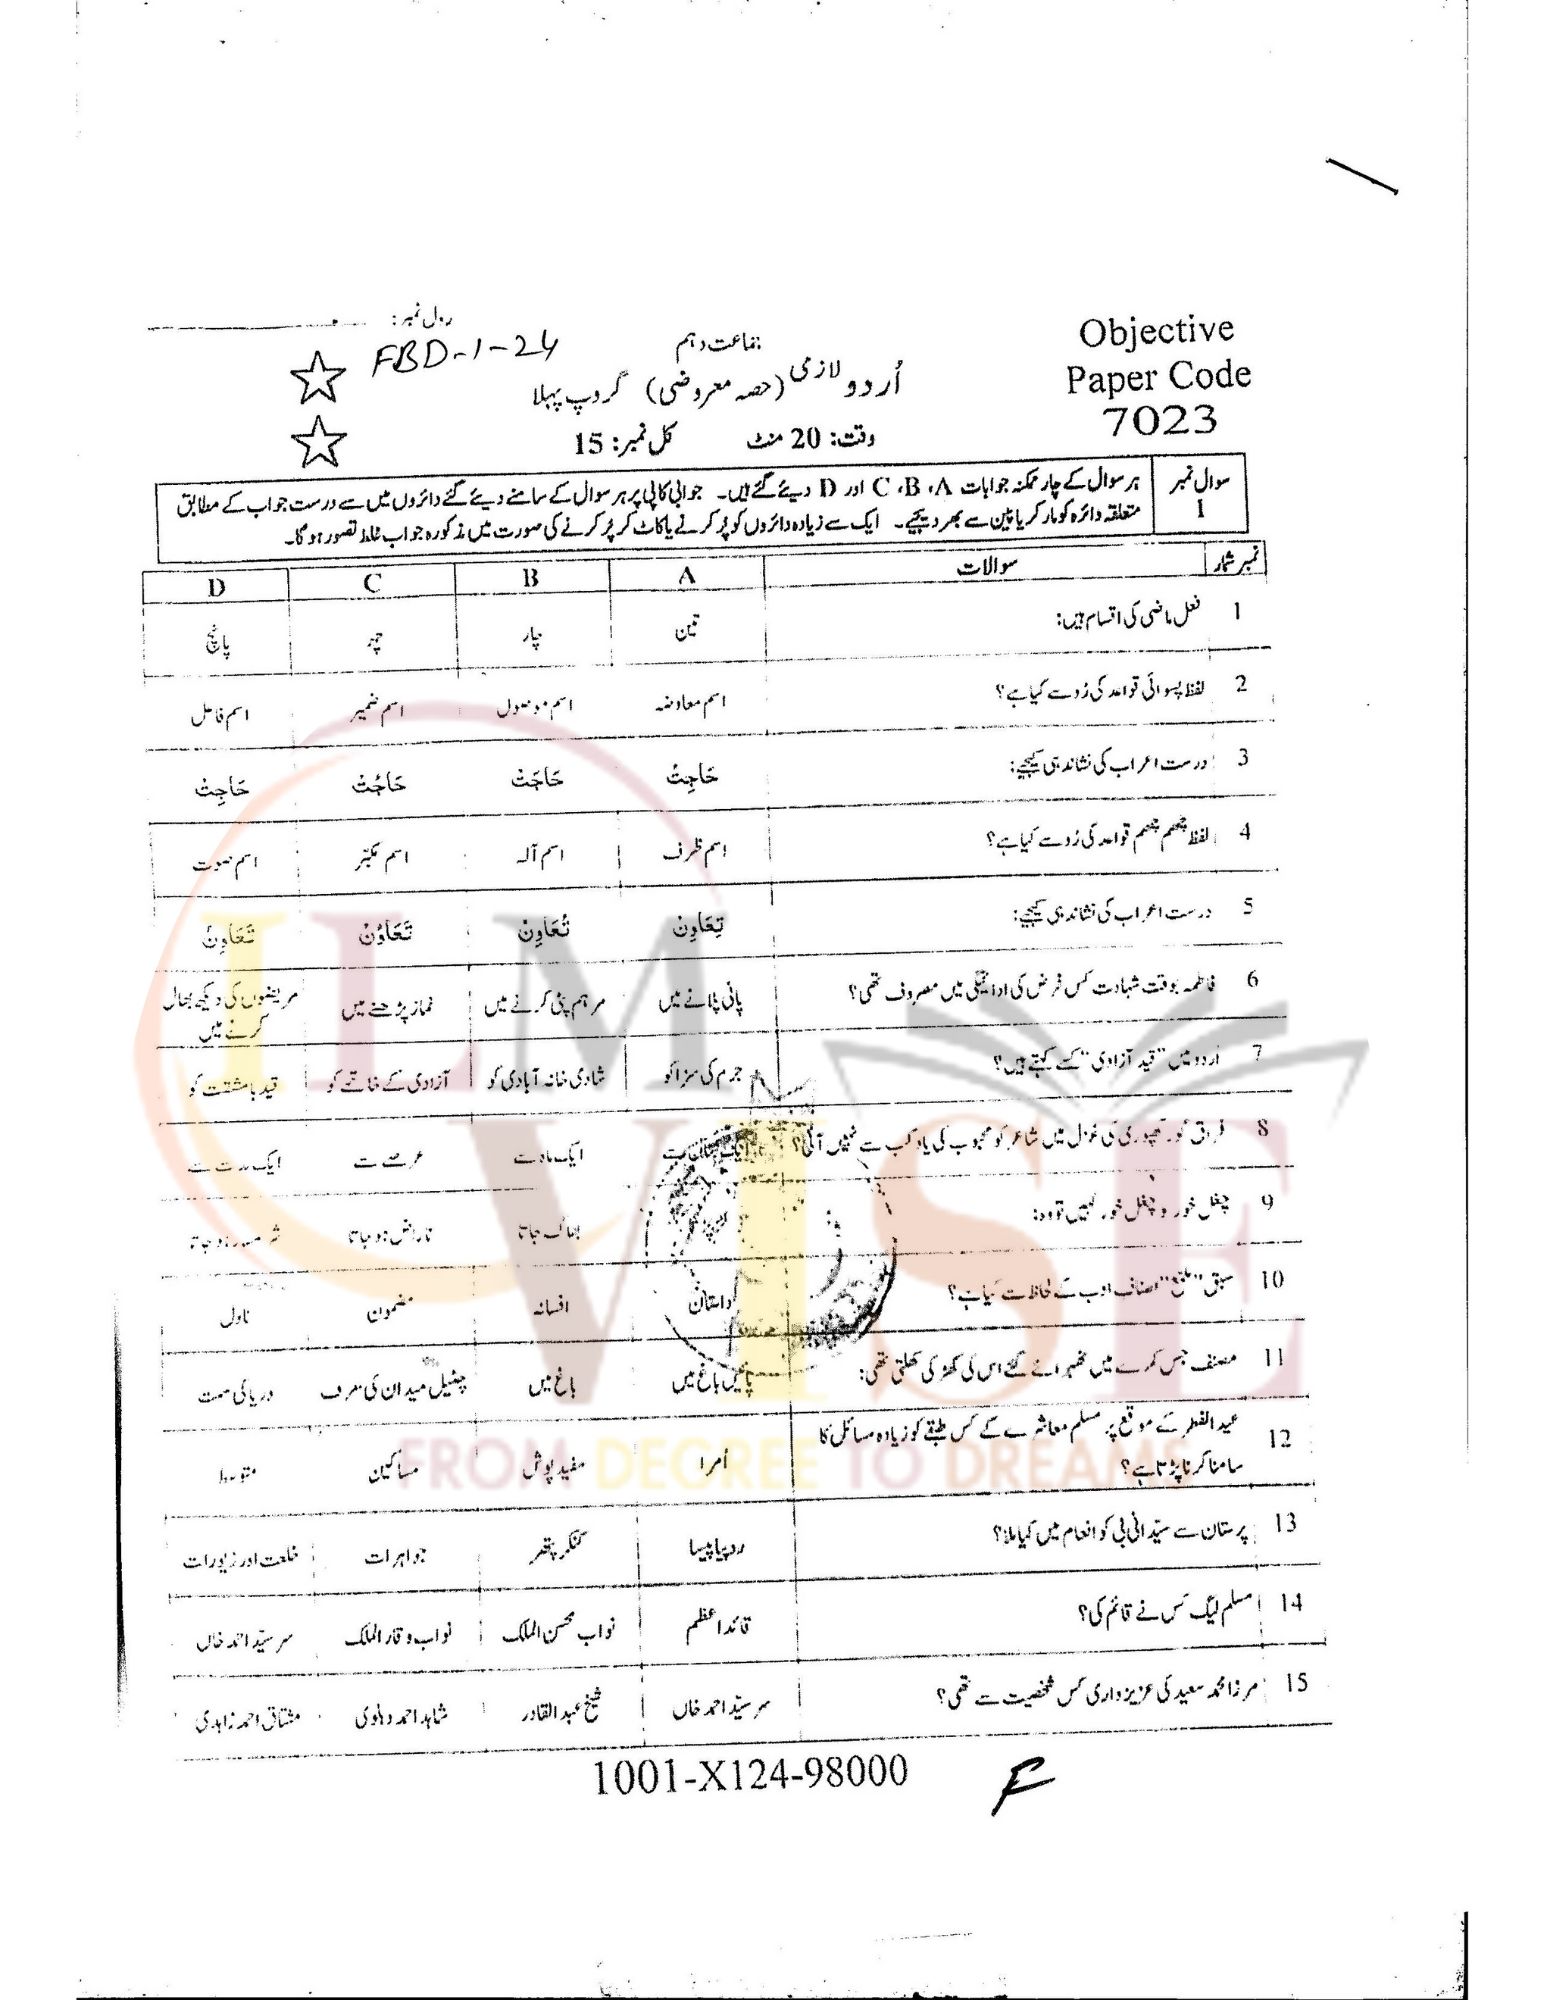 رول نمبر:
FBD-1-24
جماعت دہم
Objective
Paper Code
7023
اُردو لازمی (حصہ معروضی) گروپ پہلا
وقت: 20 منٹ کل نمبر: 15
سوال نمبر 1
ہر سوال کے چار ممکنہ جوابات A، B، C اور D دیئے گئے ہیں۔ جوابی کاپی پر ہر سوال کے سامنے دیئے گئے دائروں میں سے درست جواب کے مطابق
متعلقہ دائرہ کو مارکر یا پین سے بھر دیجیے۔ ایک سے زیادہ دائروں کو پُر کرنے یا کاٹ کر پُر کرنے کی صورت میں مذکورہ جواب غلط تصور ہو گا۔
نمبر شمار سوالات A B C D
1 فعل ماضی کی اقسام ہیں: تین چار چھ پانچ
2 لفظ پسوائی قواعد کی رُو سے کیا ہے؟ اسم معاوضہ اسم موصول اسم ضمیر اسم فاعل
3 درست اعراب کی نشاندہی کیجیے: حَاجِتْ حَاجَتْ حَاجُتْ حَاجِتْ
4 لفظ چھم چھم قواعد کی رُو سے کیا ہے؟ اسم ظرف اسم آلہ اسم مکبّر اسم صوت
5 درست اعراب کی نشاندہی کیجیے: تِعَاوِنْ تُعَاوِنْ تَعَاوُنْ تَعَاوِنْ
6 فاطمہ بوقت شہادت کس فرض کی ادائیگی میں مصروف تھی؟ پانی پلانے میں مرہم پٹی کرنے میں نماز پڑھنے میں مریضوں کی دیکھ بھال
کرنے میں
7 اُردو میں "قید آزادی" کسے کہتے ہیں؟ جرم کی سزا کو شادی خانہ آبادی کو آزادی کے خاتمے کو قید بامشقت کو
8 فراق گورکھپوری کی غزل میں شاعر کو محبوب کی یاد کب سے نہیں آئی؟ ایک ماہ سے عرصے سے ایک مدت سے
9 چغل خور کو چغل خور کہیں تو وہ: بھاگ جاتا ناراض ہو جاتا شرمندہ ہو جاتا
10 سبق "ملمع" اصناف ادب کے لحاظ سے کیا ہے؟ داستان افسانہ مضمون ناول
11 مصنف جس کمرے میں ٹھہرائے گئے اس کی کھڑکی کھلتی تھی: پائیں باغ میں باغ میں چٹیل میدان کی طرف دریا کی سمت
12 عید الفطر کے موقع پر مسلم معاشرے کے کس طبقے کو زیادہ مسائل کا
سامنا کرنا پڑتا ہے؟ اُمرا سفید پوش مساکین متوسط
13 پرستان سے سیّدانی بی کو انعام میں کیا ملا؟ روپیا پیسا کنکر پتھر جواہرات خلعت اور زیورات
14 مسلم لیگ کس نے قائم کی؟ قائداعظم نواب محسن الملک نواب وقار الملک سر سیّد احمد خاں
15 مرزا محمد سعید کی عزیز داری کس شخصیت سے تھی؟ سر سیّد احمد خاں شیخ عبدالقادر شاہد احمد دہلوی مشتاق احمد زاہدی
1001-X124-98000
ILM
VISE
FROM DEGREE TO DREAMS